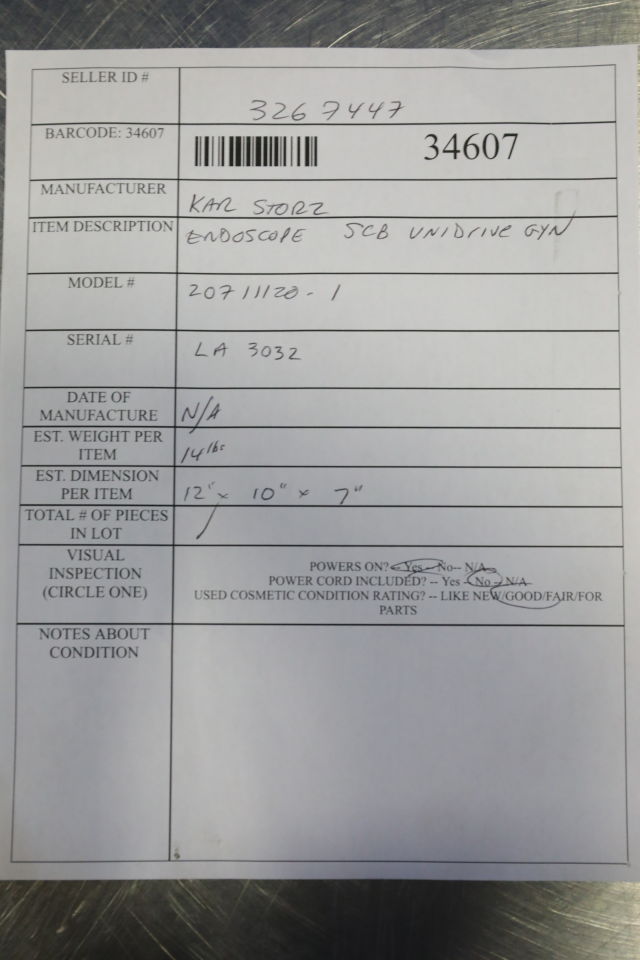 SELLER ID #
3267447
BARCODE: 34607
34607
MANUFACTURER
KAR STORZ
ITEM DESCRIPTION
ENDOSCOPE SCB UNIDrive GYN
MODEL #
20711120-1
SERIAL #
LA 3032
DATE OF
MANUFACTURE
N/A
EST. WEIGHT PER
ITEM
14 lbs
EST. DIMENSION
PER ITEM
12" x 10" x 7"
TOTAL # OF PIECES
IN LOT
1
VISUAL
INSPECTION
(CIRCLE ONE)
POWERS ON? -- Yes -- No-- N/A
POWER CORD INCLUDED? -- Yes -- No -- N/A
USED COSMETIC CONDITION RATING? -- LIKE NEW/GOOD/FAIR/FOR
PARTS
NOTES ABOUT
CONDITION